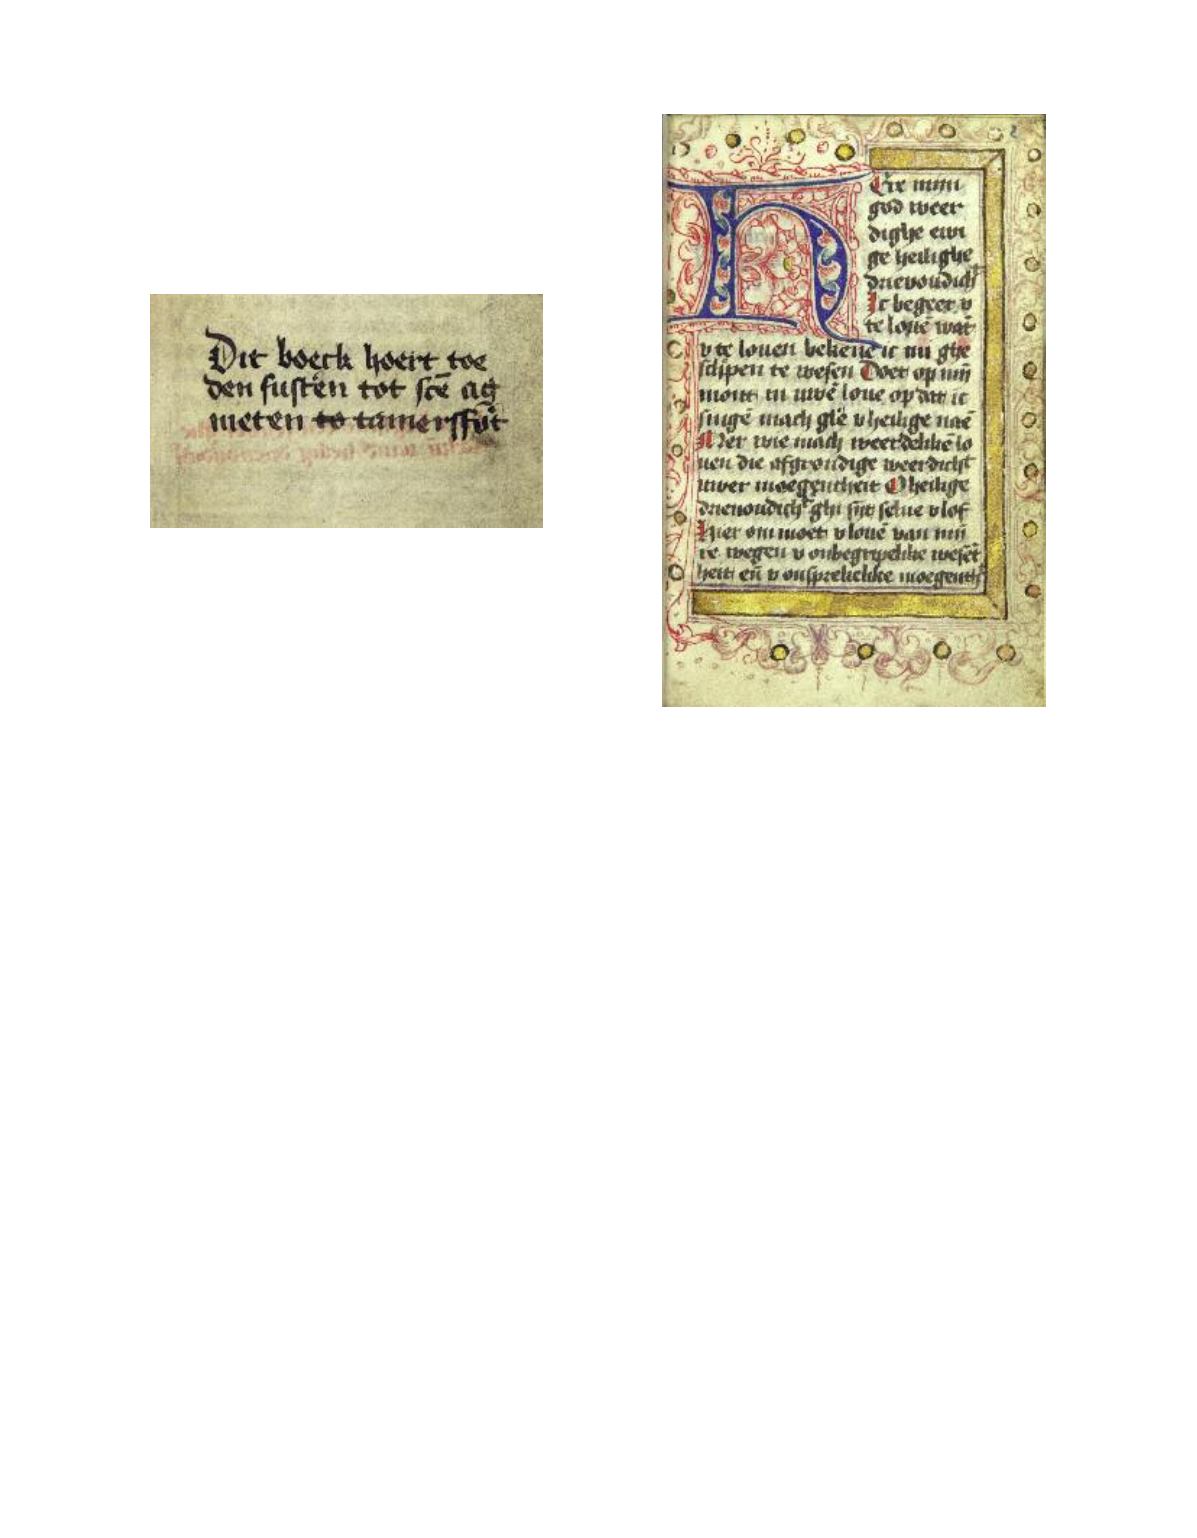 Dit boeck hoert toe
den sustēn tot scē ag
nieten to tamersffōt
2
Ere mijn
god weer
dighe ewi
ge heilighe
drievoudich
Ic begeer v
te louē wāt
v te louen bekēne ic mi ghe
schapen te wesen Doet op mijn
mont in uwē loue op dat ic
singē mach glē v heilige naē
Mer wie mach weerdelike lo
uen die afgrondige weerdich
uwer moegentheit O heilige
drievoudich ghi sijt selue v lof
Hier om moet v louē van mij
re wegen v onbegripelike weset
heit eñ v onsprekelike moegenth